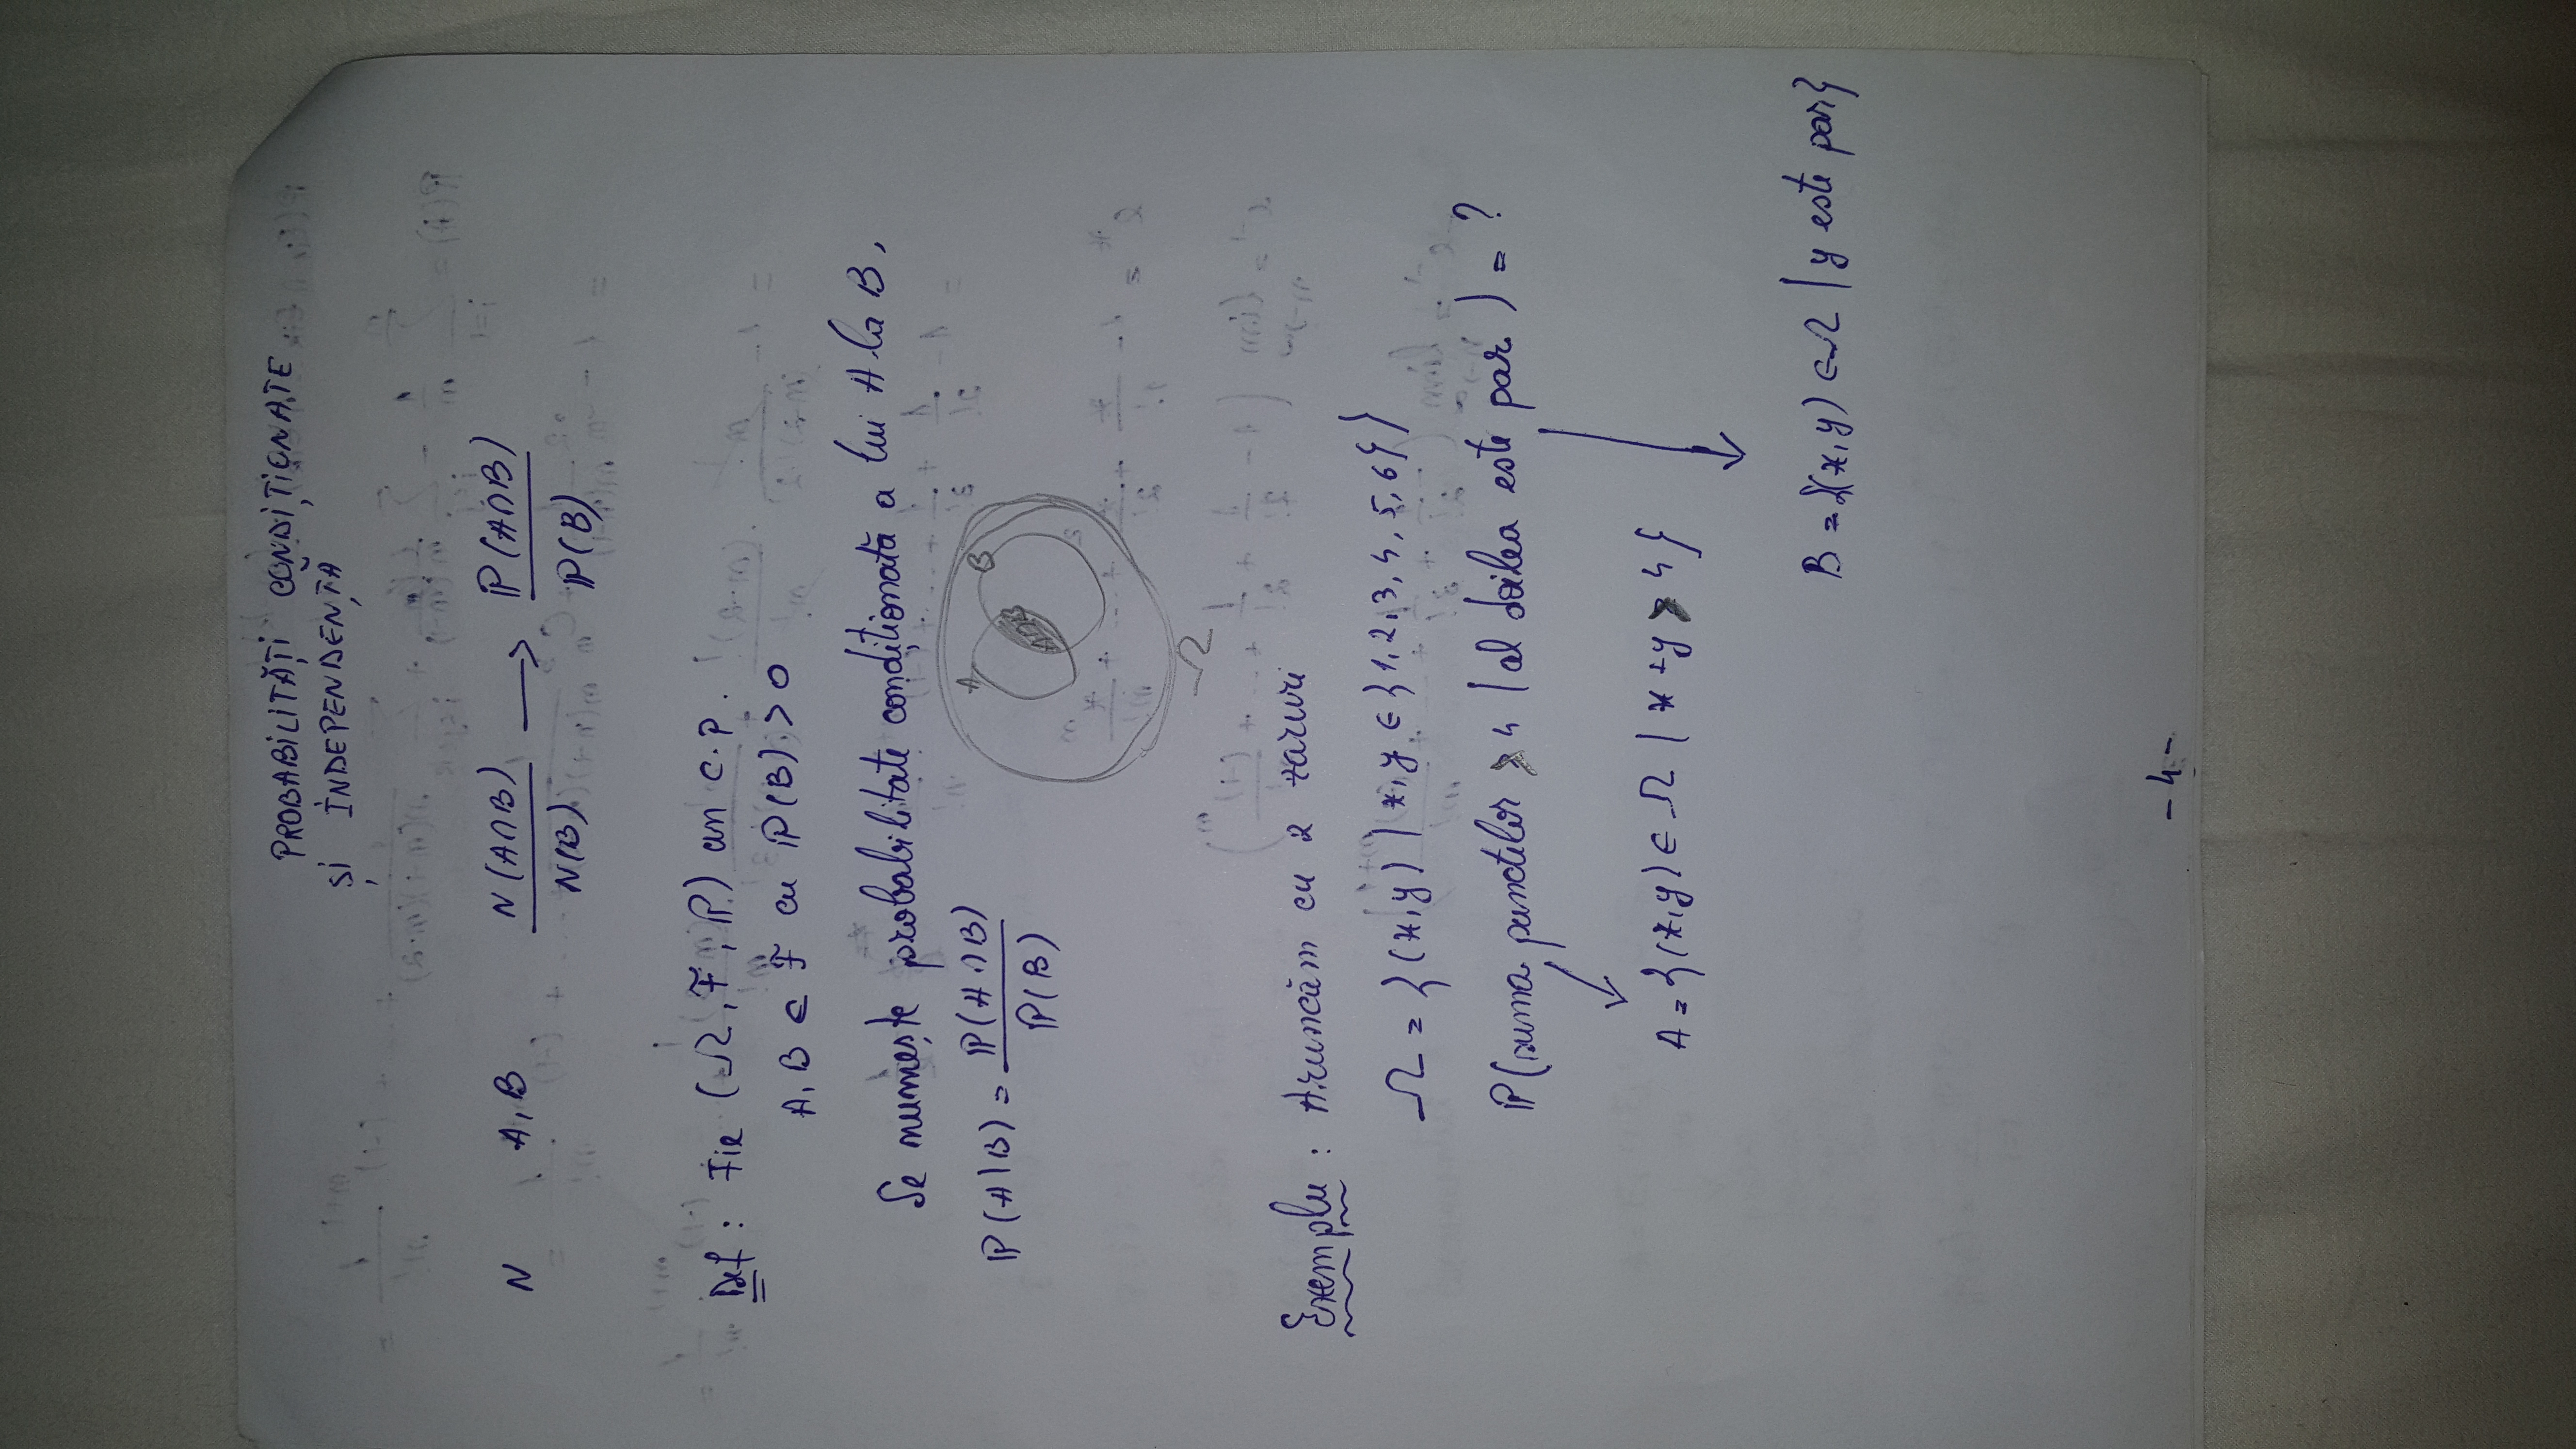 PROBABILITĂȚI CONDIȚIONATE
ȘI INDEPENDENȚĂ
N A, B N(A∩B) / N(B) ⟶ ℙ(A∩B) / ℙ(B)
Def : Fie (Ω, F, ℙ) un c.p.
A, B ∈ F cu ℙ(B) > 0
Se numește probabilitate condiționată a lui A la B,
ℙ(A|B) = ℙ(A∩B) / ℙ(B)
A B
A∩B
Ω
Exemplu : Aruncăm cu 2 zaruri
Ω = {(x,y) | x,y ∈ {1,2,3,4,5,6}}
ℙ(suma punctelor > 4 | al doilea este par) = ?
A = {(x,y) ∈ Ω | x+y > 4}
B = {(x,y) ∈ Ω | y este par}
- 4 -